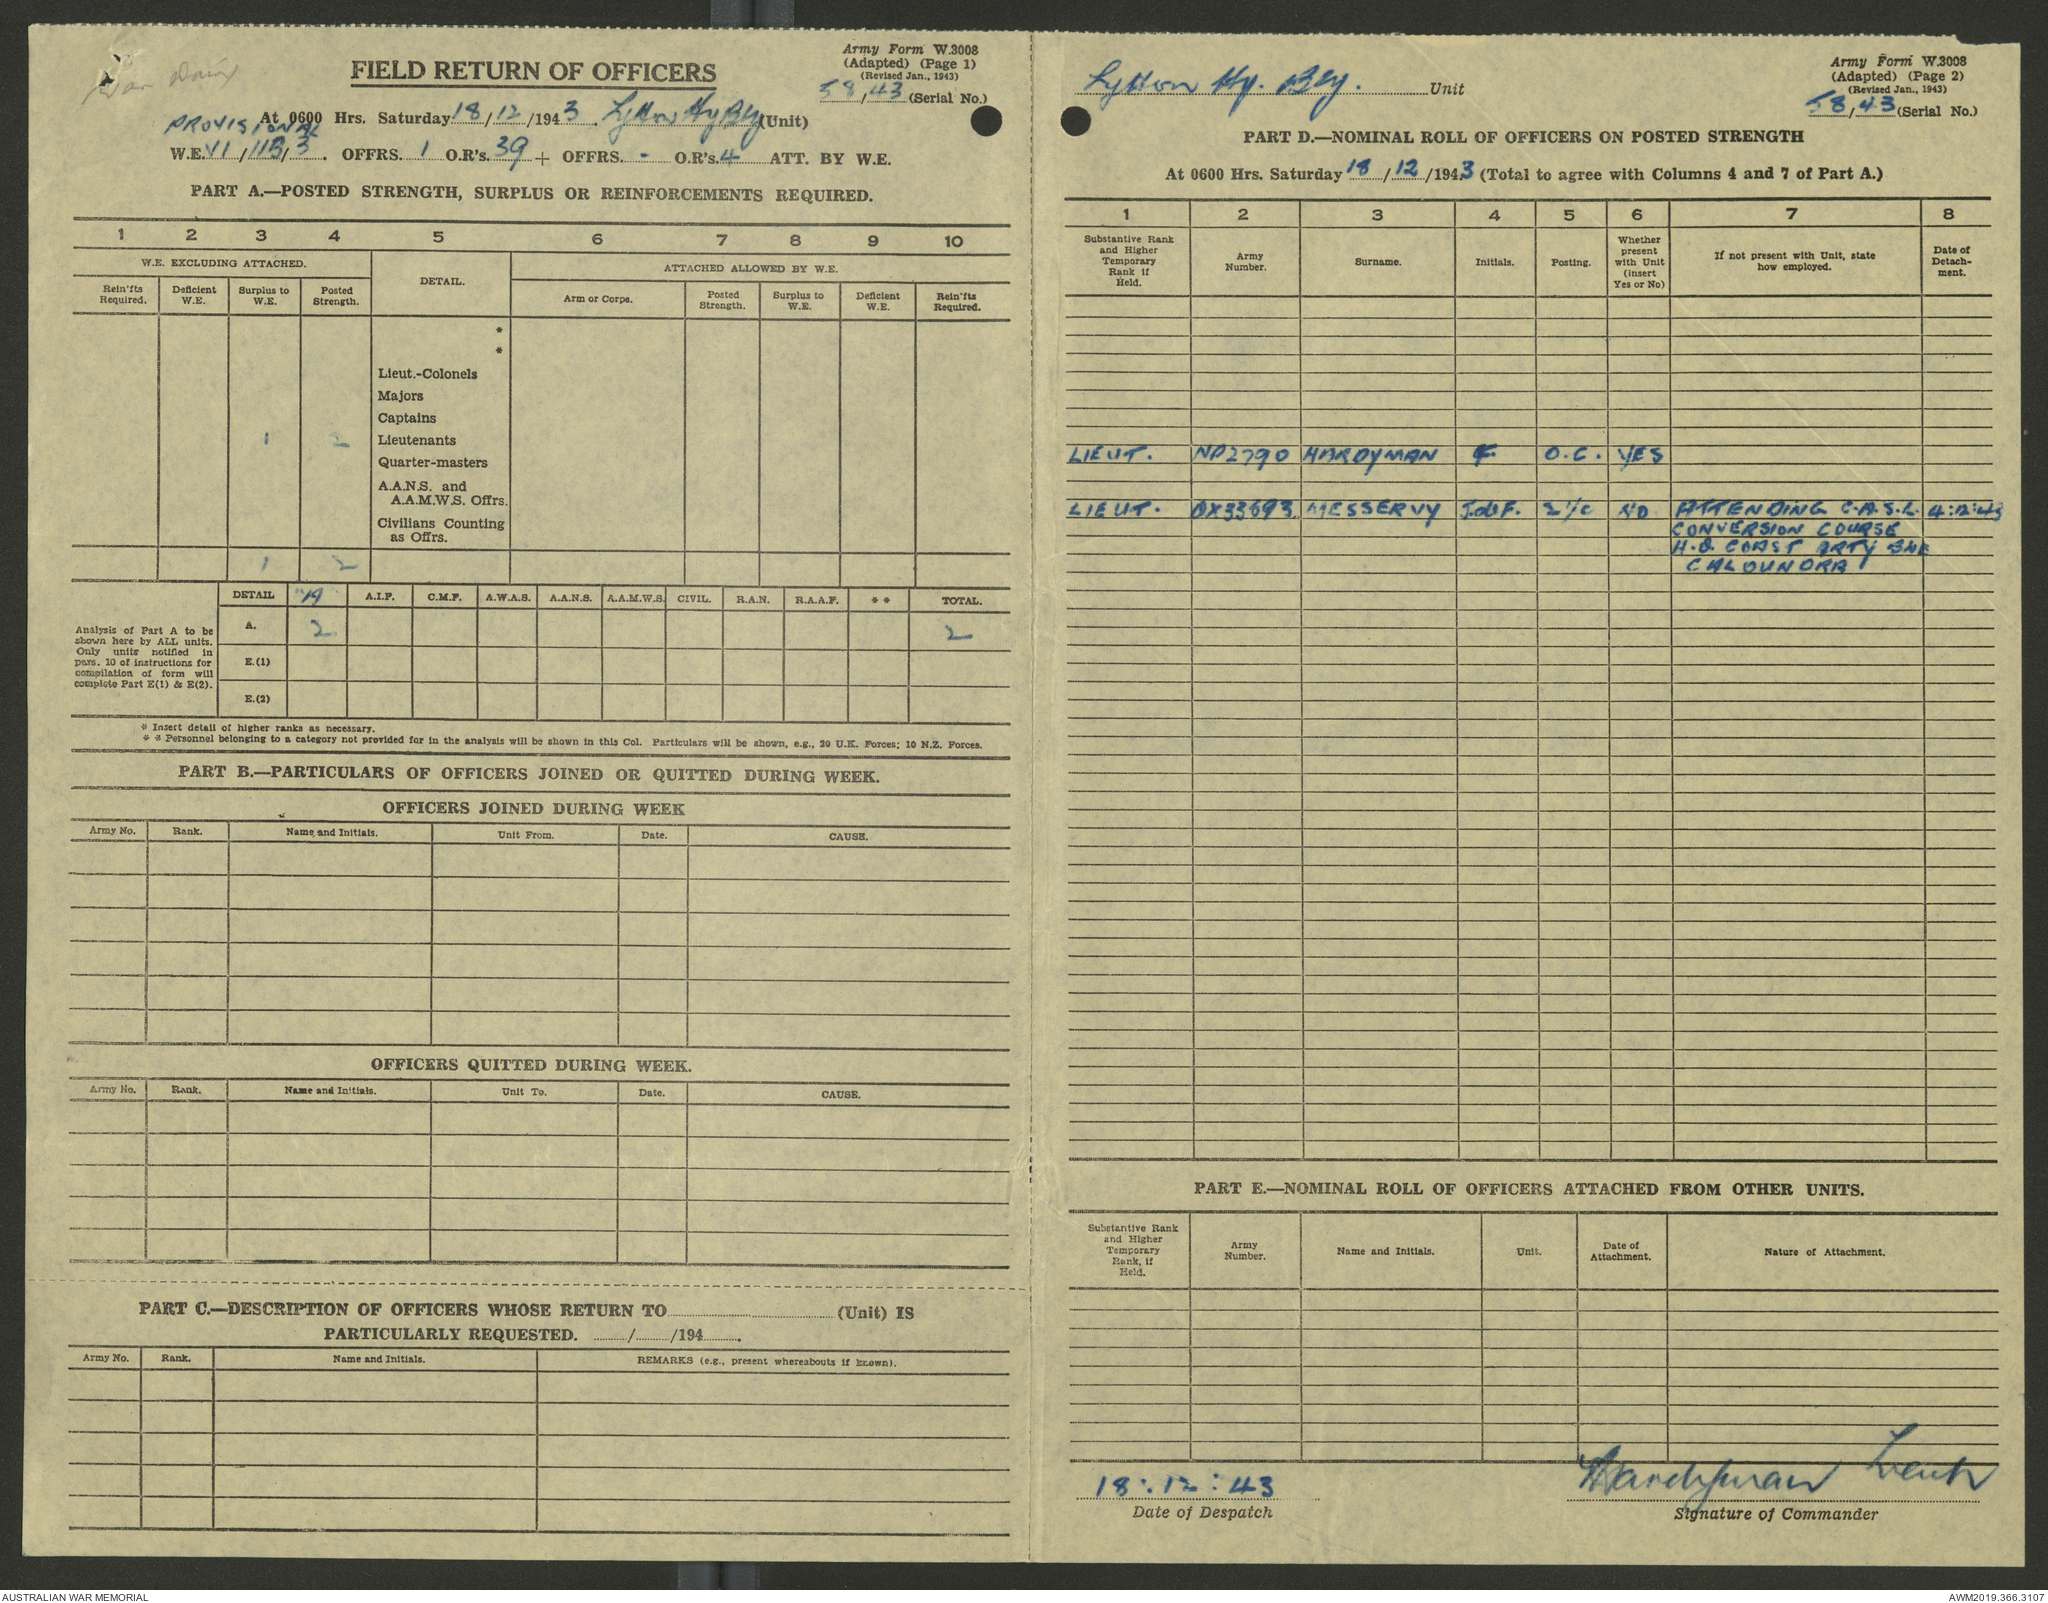 War Diary
FIELD RETURN OF OFFICERS
Army Form W.3008
(Adapted) (Page 1)
(Revised Jan., 1943)
58/43 (Serial No.)
At 0600 Hrs. Saturday 18/12/1943. Lytton Hy Bty (Unit)
PROVISIONAL
W.E. VI/115/3. OFFRS. 1 O.R's. 39 + OFFRS. - O.R's. 4 ATT. BY W.E.
PART A.—POSTED STRENGTH, SURPLUS OR REINFORCEMENTS REQUIRED.
1 2 3 4 5 6 7 8 9 10
W.E. EXCLUDING ATTACHED. DETAIL. ATTACHED ALLOWED BY W.E.
Rein'fts Required. Deficient W.E. Surplus to W.E. Posted Strength. Arm or Corps. Posted Strength. Surplus to W.E. Deficient W.E. Rein'fts Required.
*
*
Lieut.-Colonels
Majors
Captains
1 2 Lieutenants
Quarter-masters
A.A.N.S. and
A.A.M.W.S. Offrs.
Civilians Counting
as Offrs.
1 2
DETAIL A.I.F. C.M.F. A.W.A.S. A.A.N.S. A.A.M.W.S. CIVIL. R.A.N. R.A.A.F. * * TOTAL.
Analysis of Part A to be shown here by ALL units. Only units notified in pars. 10 of instructions for compilation of form will complete Part E(1) & E(2).
A. 2 2
E.(1)
E.(2)
* Insert detail of higher ranks as necessary.
* * Personnel belonging to a category not provided for in the analysis will be shown in this Col. Particulars will be shown, e.g., 20 U.K. Forces; 10 N.Z. Forces.
PART B.—PARTICULARS OF OFFICERS JOINED OR QUITTED DURING WEEK.
OFFICERS JOINED DURING WEEK
Army No. Rank. Name and Initials. Unit From. Date. CAUSE.
OFFICERS QUITTED DURING WEEK.
Army No. Rank. Name and Initials. Unit To. Date. CAUSE.
PART C.—DESCRIPTION OF OFFICERS WHOSE RETURN TO (Unit) IS
PARTICULARLY REQUESTED. / /194 .
Army No. Rank. Name and Initials. REMARKS (e.g., present whereabouts if known).
Lytton Hy. Bty. Unit
Army Form W.3008
(Adapted) (Page 2)
(Revised Jan., 1943)
58/43 (Serial No.)
PART D.—NOMINAL ROLL OF OFFICERS ON POSTED STRENGTH
At 0600 Hrs. Saturday 18/12/1943 (Total to agree with Columns 4 and 7 of Part A.)
1 2 3 4 5 6 7 8
Substantive Rank and Higher Temporary Rank if Held. Army Number. Surname. Initials. Posting. Whether present with Unit (insert Yes or No) If not present with Unit, state how employed. Date of Detachment.
LIEUT. NP2790 HARDYMAN F. O.C. YES
LIEUT. QX33693 MESSERVY J.deF. 2 I/C NO ATTENDING C.A.S.L. 4:12:43
CONVERSION COURSE
H.Q. COAST ARTY BNE
CALOUNDRA
PART E.—NOMINAL ROLL OF OFFICERS ATTACHED FROM OTHER UNITS.
Substantive Rank and Higher Temporary Rank, if Held. Army Number. Name and Initials. Unit. Date of Attachment. Nature of Attachment.
18:12:43
Date of Despatch
FHardyman Lieut
Signature of Commander
AUSTRALIAN WAR MEMORIAL
AWM2019.366.3107